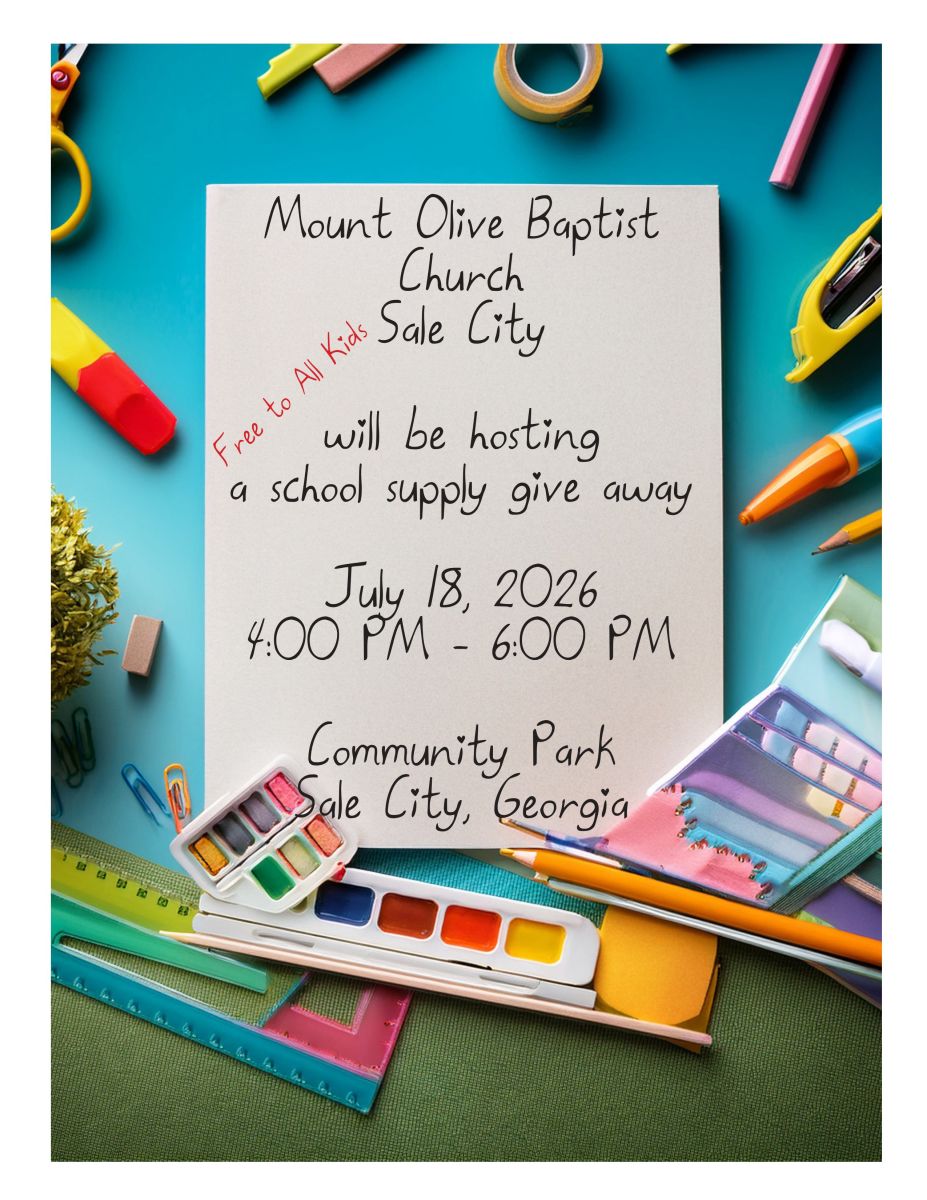 Mount Olive Baptist
Church
Sale City
Free to All Kids
will be hosting
a school supply give away
July 18, 2026
4:00 PM - 6:00 PM
Community Park
Sale City, Georgia